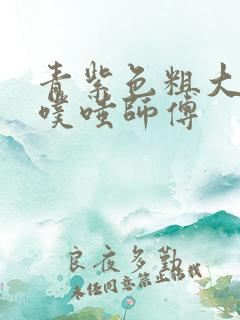 青紫色粗大
噗哇師傅
良夜多勤
未经同意禁止转载